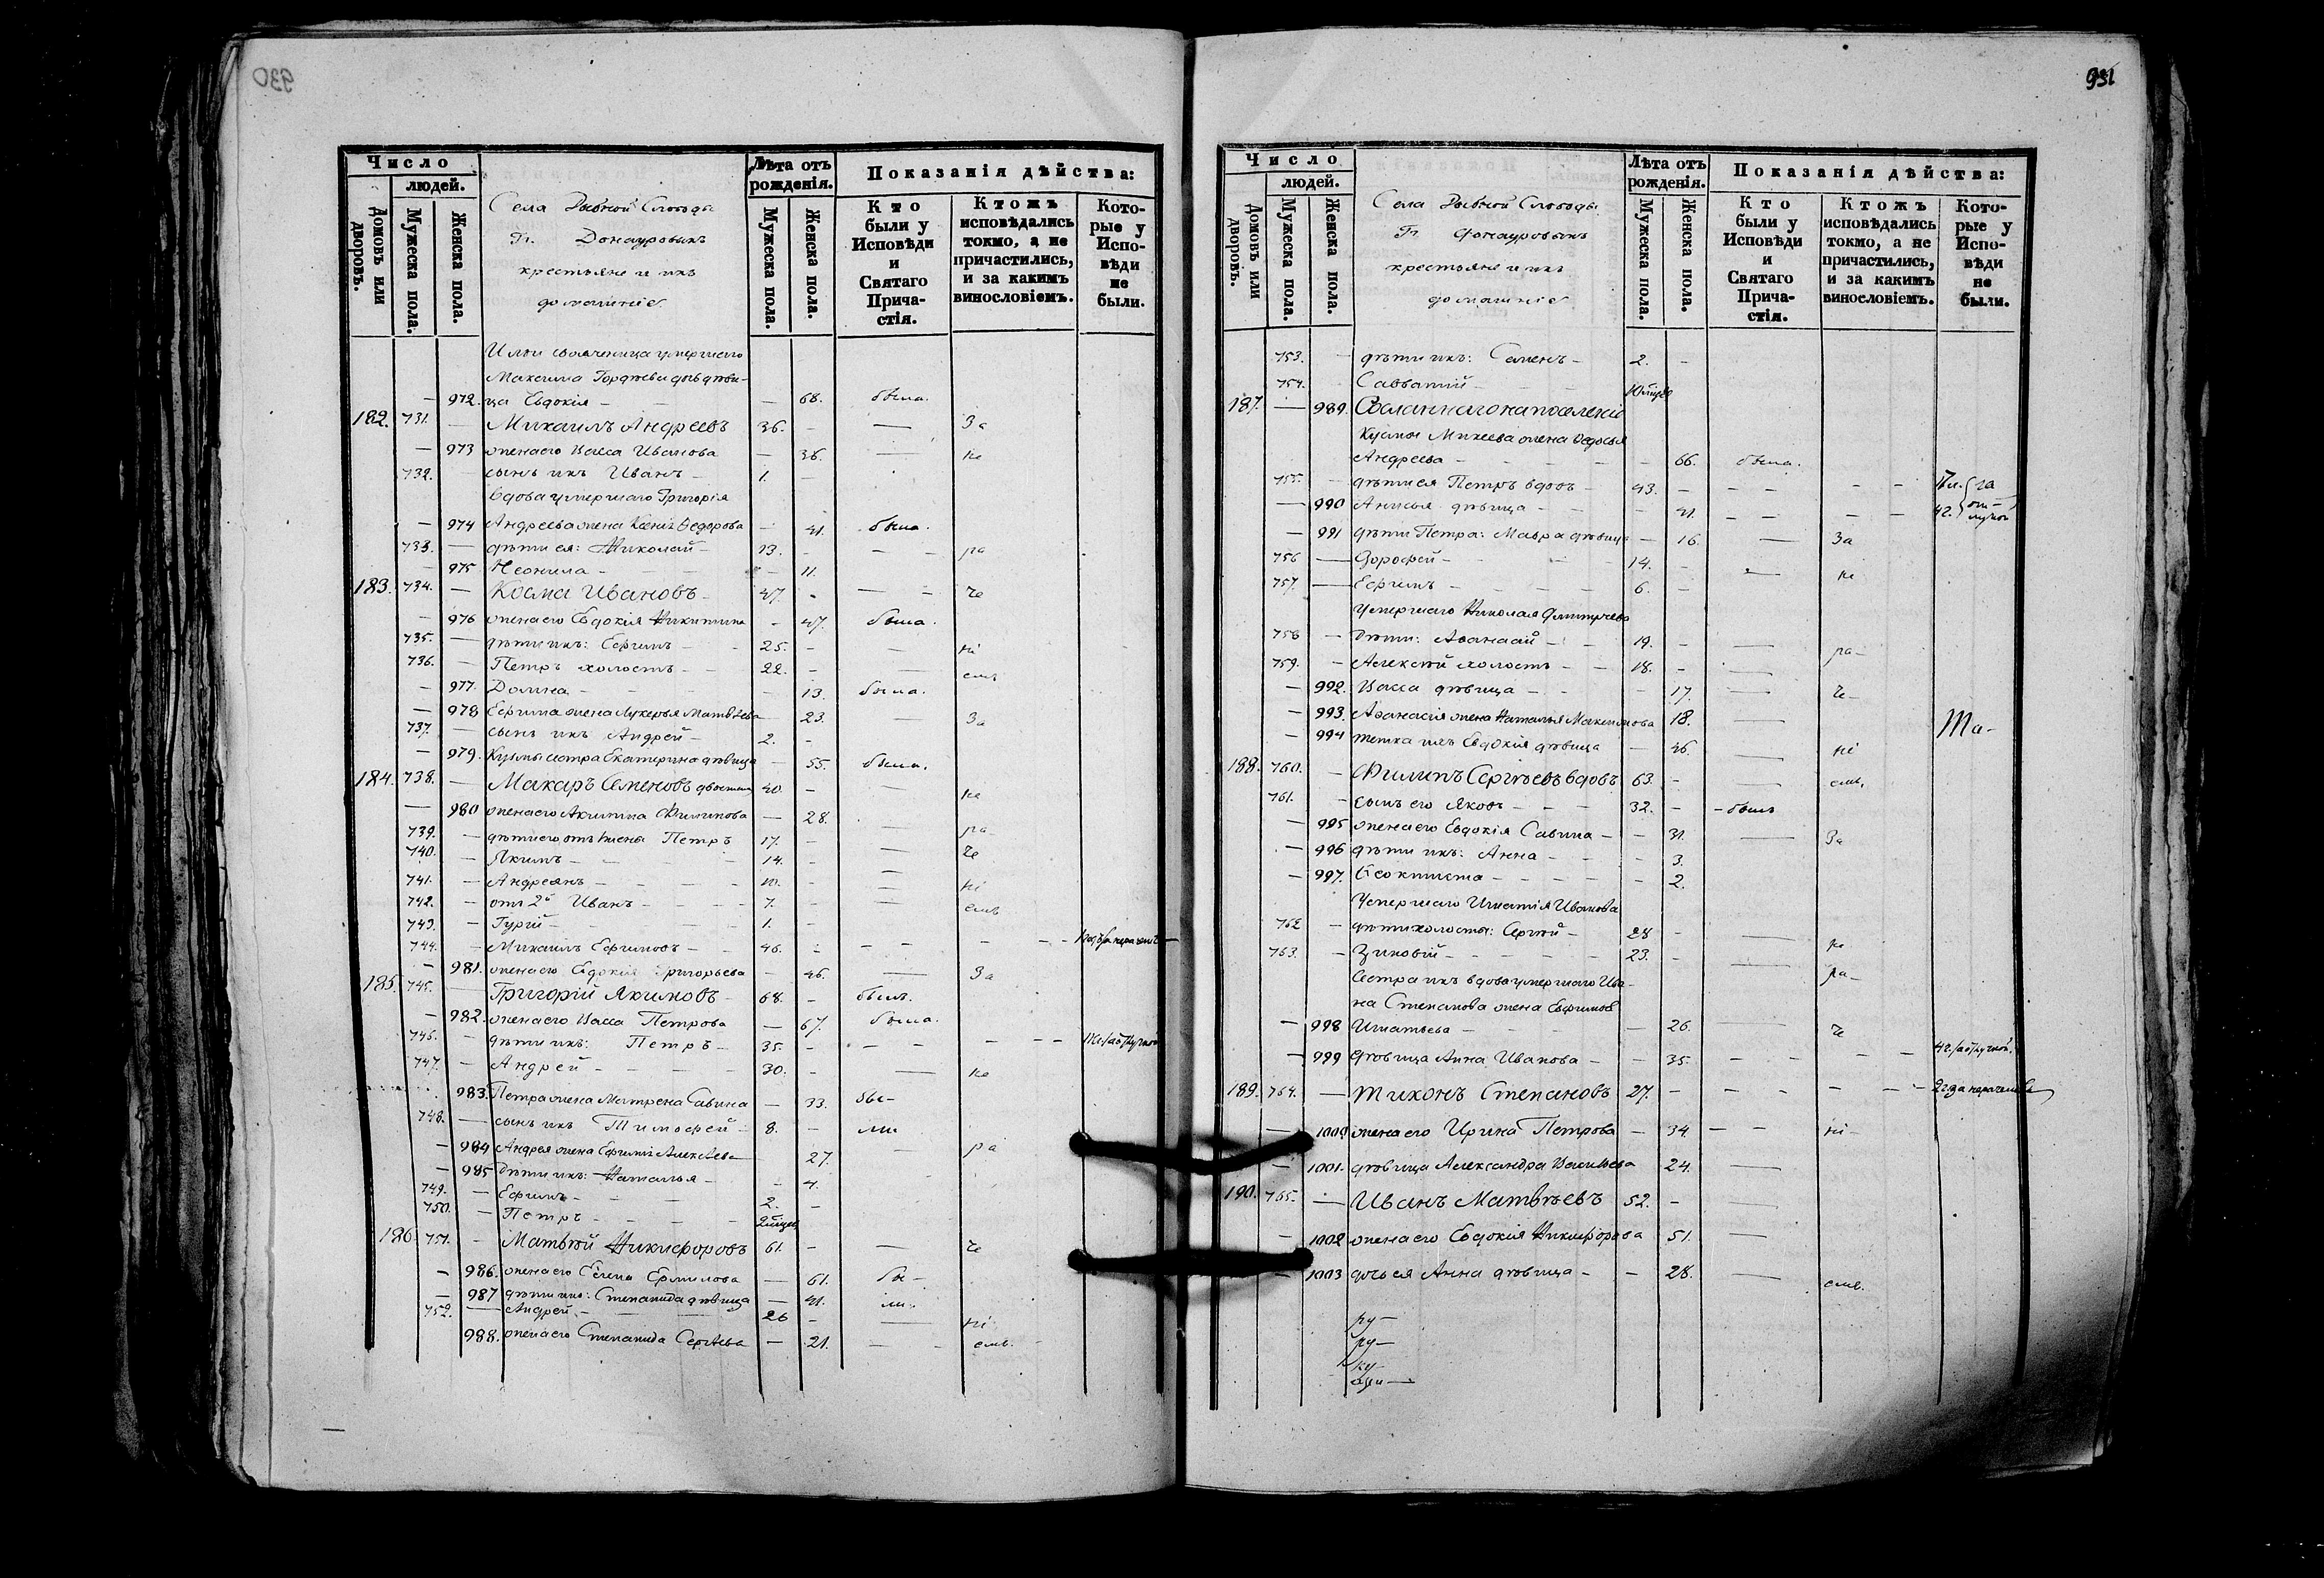 930
Число
людей.
Домовъ или дворовъ.
Мужеска пола.
Женска пола.
Села Рыбной Слободы
Гг. Донауровыхъ
крестьяне и ихъ
домашніе
Лѣта отъ рожденія.
Мужеска пола.
Женска пола.
Показанія дѣйства:
Кто были у Исповѣди и Святаго Причастія.
Ктожъ исповѣдались токмо, а не причастились, и за какимъ винословіемъ.
Которые у Исповѣди не были.
умершаго
Максима дочь дѣви-
— 972. ца Евдокія — — 68. была.
182. 731. — Михаилъ Андреевъ 36. - — За
— 973 жена его Васса Иванова — 36. — не
732. — сынъ ихъ Иванъ — 1. -
вдова умершаго Григорія
— 974 Андреева жена Ксенія Ѳедорова — 41. была.
733. — дѣти ея: Николай — 13. - — ра
— 975 Неонила — 11.
183. 734. — Косма Ивановъ — 47. - — че
— 976 жена его Евдокія Никитина — 47. была.
735. — дѣти ихъ: Ефимъ — 25. - — ні
736. — Петръ холостъ — 22. - — емъ
— 977. Домна — 13. была.
— 978 Ефима жена Лукерья Матвѣева — 23. — За
737. — сынъ ихъ Андрей — 2. -
— 979. Кузмы сестра Екатерина дѣвица — 55. была.
184. 738. — Макаръ Семеновъ 40. - — не
— 980 жена его Акилина Филипова — 28. —
739. — дѣти его отъ Петръ 17. - — ра-
740. — Якимъ — 14. - — че
741. — Андреянъ — 10. - — ні
742. — отъ 2й Иванъ — 7. - — емъ
743. — Гурій — 1. -
744. — Михаилъ Ефимовъ — 46. -
— 981. жена его Евдокія Григорьева — 46. — За
185. 745. — Григорій Якимовъ — 68. - былъ.
— 982. жена его Васса Петрова — 67. была.
746. — дѣти ихъ: Петръ — 35. -
747. — Андрей — 30. - — не
983. Петра жена Матрена Савина — 33. бы-
748. — сынъ ихъ Тимофей — 8. - ли
— 984 Андрея жена Ефимія Алексѣева — 27. — ра
— 985 Дѣти ихъ: Наталья — 4.
749. — Ефимъ — 2. -
750. — Петръ —
186. 751. — Матвѣй Никифоровъ 61. - — че
— 986. жена его Елена Ермилова — 61. бы-
— 987 дѣти ихъ: Степанида дѣвица — 41. ли.
752. — Андрей. — 26 - — ні
988. жена его Степанида Сергѣева — 21. — емъ.
931
Число
людей.
Домовъ или дворовъ.
Мужеска пола.
Женска пола.
Села Рыбной Слободы
Гг Донауровыхъ
крестьяне и ихъ
домашніе
Лѣта отъ рожденія.
Мужеска пола.
Женска пола.
Показанія дѣйства:
Кто были у Исповѣди и Святаго Причастія.
Ктожъ исповѣдались токмо, а не причастились, и за какимъ винословіемъ.
Которые у Исповѣди не были.
753. — дѣти ихъ: Семенъ — 2. -
754. Савватій —
187. — 989. Сосланнаго на поселеніе
Кузмы Михеева жена Ѳедосья
Андреева — — 66. была.
755. — дѣти ея Петръ вдовъ — 43. -
— 990 Анисья дѣвица — 41.
— 991 дѣти Петра: Мавра дѣвица — 16. — За
756 — Дорофей — 14. - — не
757. — Ефимъ — 6. -
умершаго Николая Дмитріева
758 — дѣти: Аѳанасій — 19. - — ра-
759. — Алексѣй холостъ — 18. - —
— 992. Васса дѣвица — 17. — че-
— 993. Аѳанасія жена Наталья Максимова 18. —
— 994 тетка ихъ Евдокія дѣвица — 46. — ні
188. 760. — Филипъ Сергѣевъ вдовъ 63. - — емъ,
761. — сынъ его Яковъ — 32. - - былъ
— 995 жена его Евдокія Савина — 31. — За
— 996 дѣти ихъ: Анна — 3.
— 997. Ѳеоктиста — 2.
умершаго Игнатія Иванова
762 — дѣти холосты: Сергѣй — 28 - — не
763. — Зиновій — 23. - — ра-
Сестра ихъ вдова умершаго Ива-
на Степанова жена Евфимія
— 998 Игнатьева — 26. — че
— 999 дѣвица Анна Иванова — 35.
189. 764. — Тихонъ Степановъ 27. -
— 1000 жена его Ирина Петрова — 34. — ні-
— 1001. дѣвица Александра Васильева 24. —
190. 765. — Иванъ Матвѣевъ 52. - —
— 1002 жена его Евдокія Никифорова 51. —
— 1003 дочь ея Анна дѣвица — 28. — емъ.